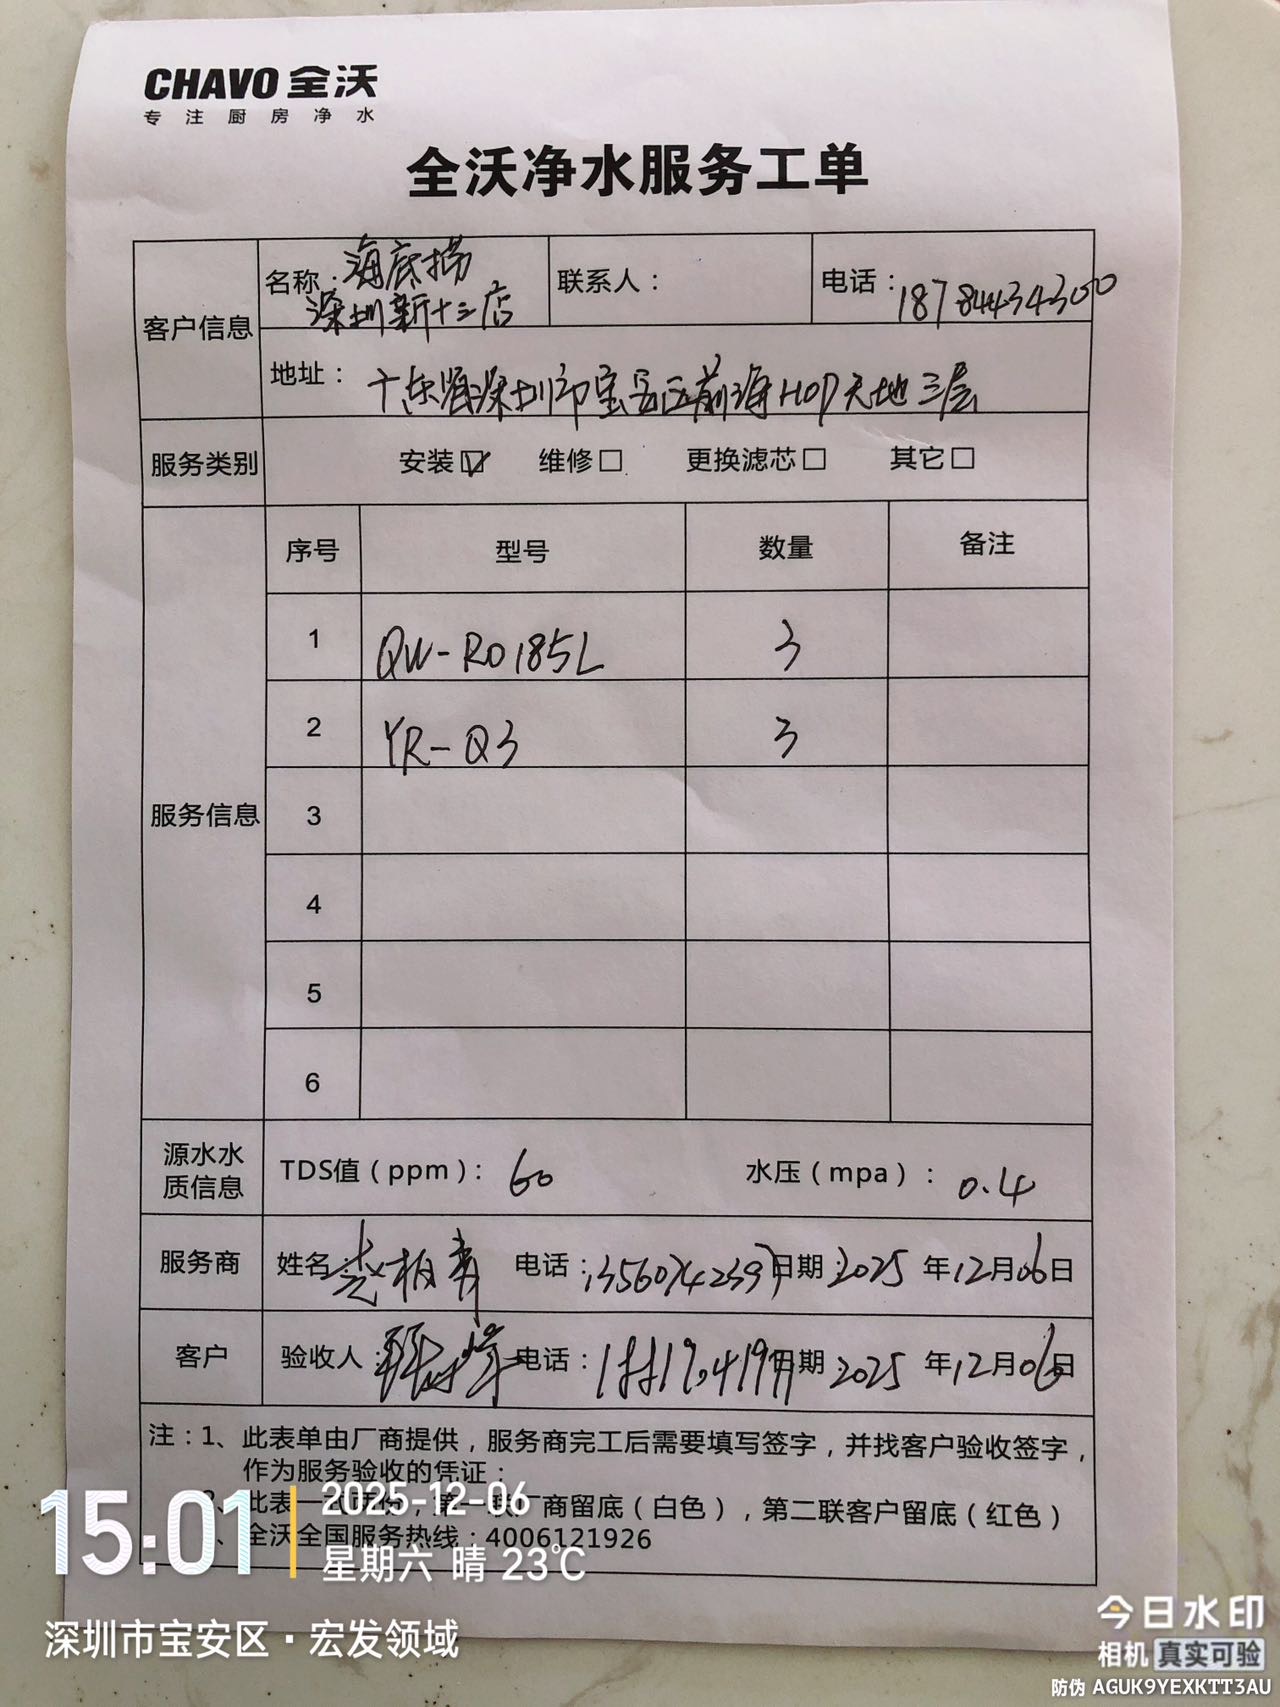 CHAVO 全沃
专注厨房净水
全沃净水服务工单
客户信息
名称：海底捞
深圳新十三店
联系人：
电话：18784434300
地址：广东省深圳市宝安区前海HOP天地三层
服务类别 安装☑ 维修□ 更换滤芯□ 其它□
服务信息
序号 型号 数量 备注
1 QW-RO185L 3
2 YR-Q3 3
3
4
5
6
源水水质信息 TDS值（ppm）：60 水压（mpa）：0.4
服务商 姓名 电话：13560742397 日期：2025年12月06日
客户 验收人： 电话： 日期 2025年12月06日
注：1、此表单由厂商提供，服务商完工后需要填写签字，并找客户验收签字，
作为服务验收的凭证；
2、此表一式两份，第一联厂商留底（白色），第二联客户留底（红色）
、全沃全国服务热线：4006121926
15:01
2025-12-06
星期六 晴 23℃
深圳市宝安区·宏发领域
今日水印
相机 真实可验
防伪 AGUK9YEXKTT3AU